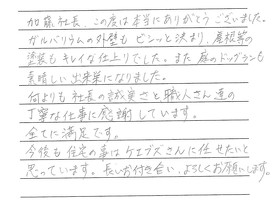 加藤社長、この度は本当にありがとうございました。
ガルバリウムの外壁もビシッと決まり、屋根等の
塗装もキレイな仕上りでした。また庭のドッグランも
素晴しい出来栄になりました。
何よりも社長の誠実さと職人さん達の
丁寧な仕事に感謝しています。
全てに満足です。
今後も住宅の事はケエブズさんに任せたいと
思っています。長いお付き合い、よろしくお願いします。